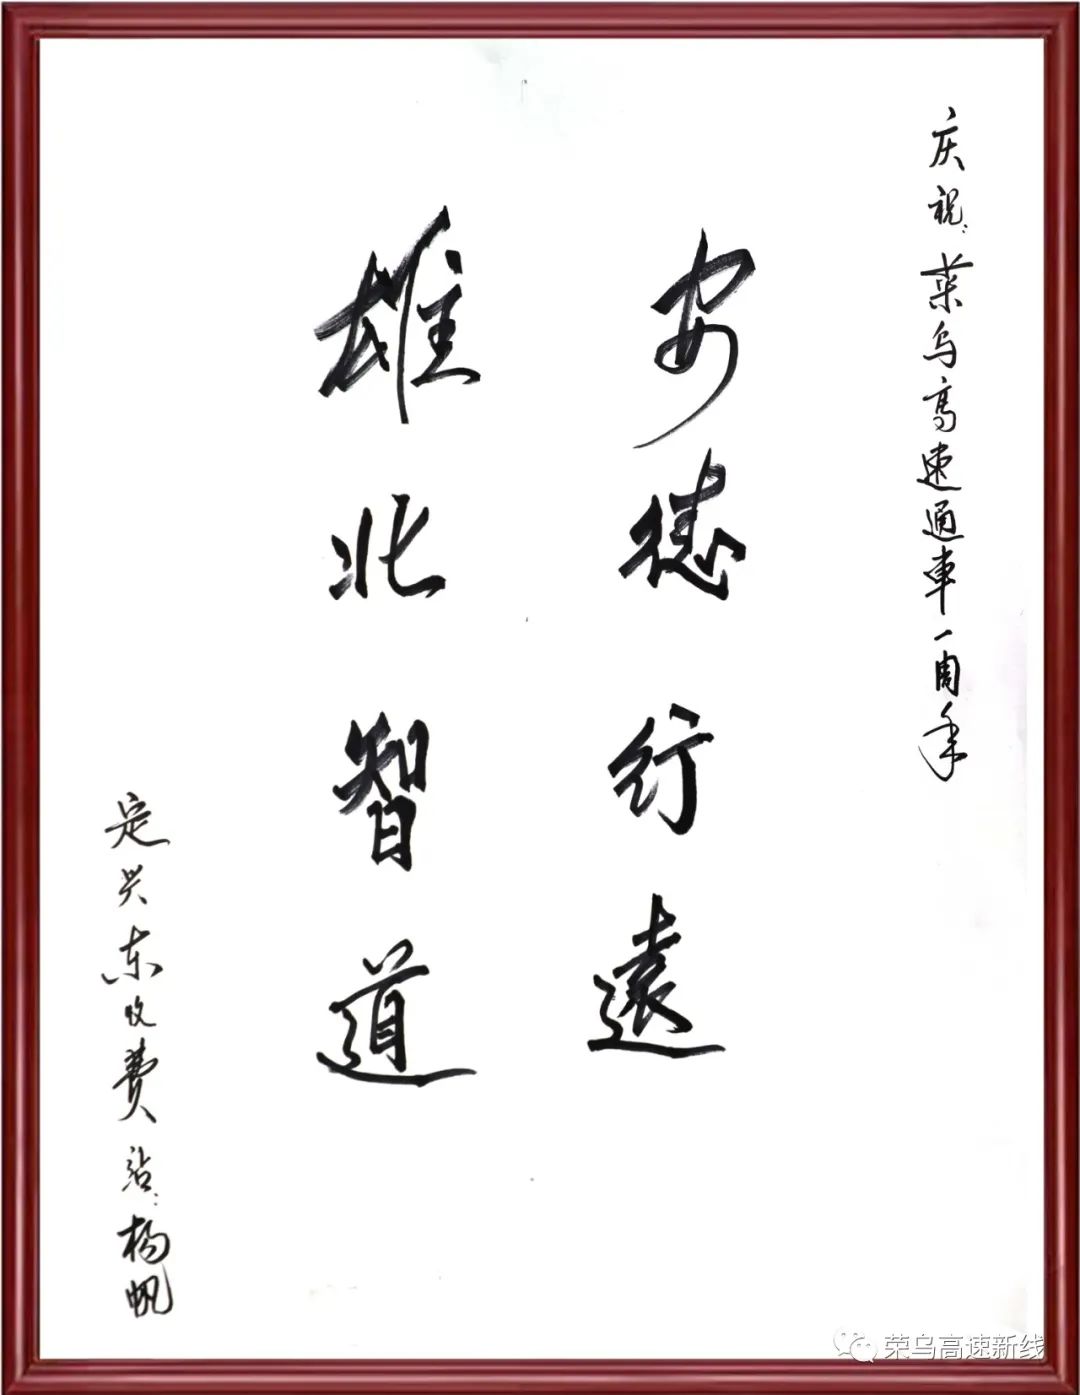 庆祝：荣乌高速通車一周年
安德行遠
雄北智道
定兴东收费站：杨帆
荣乌高速新线